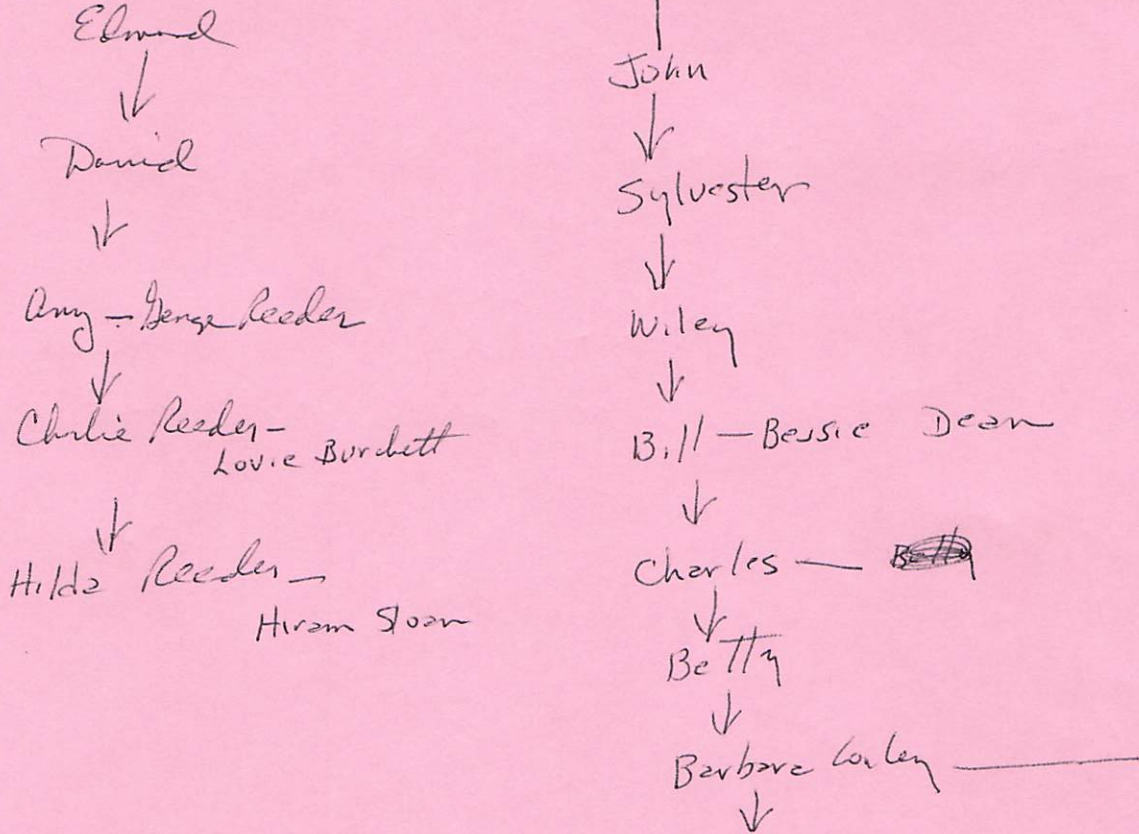 Edmund
David
Amy - George Reeder
Charlie Reeder -
Lovie Burchett
Hilda Reeder -
Hiram Sloan
John
Sylvester
Wiley
Bill - Bessie Dean
Charles -
Betty
Barbara Conley